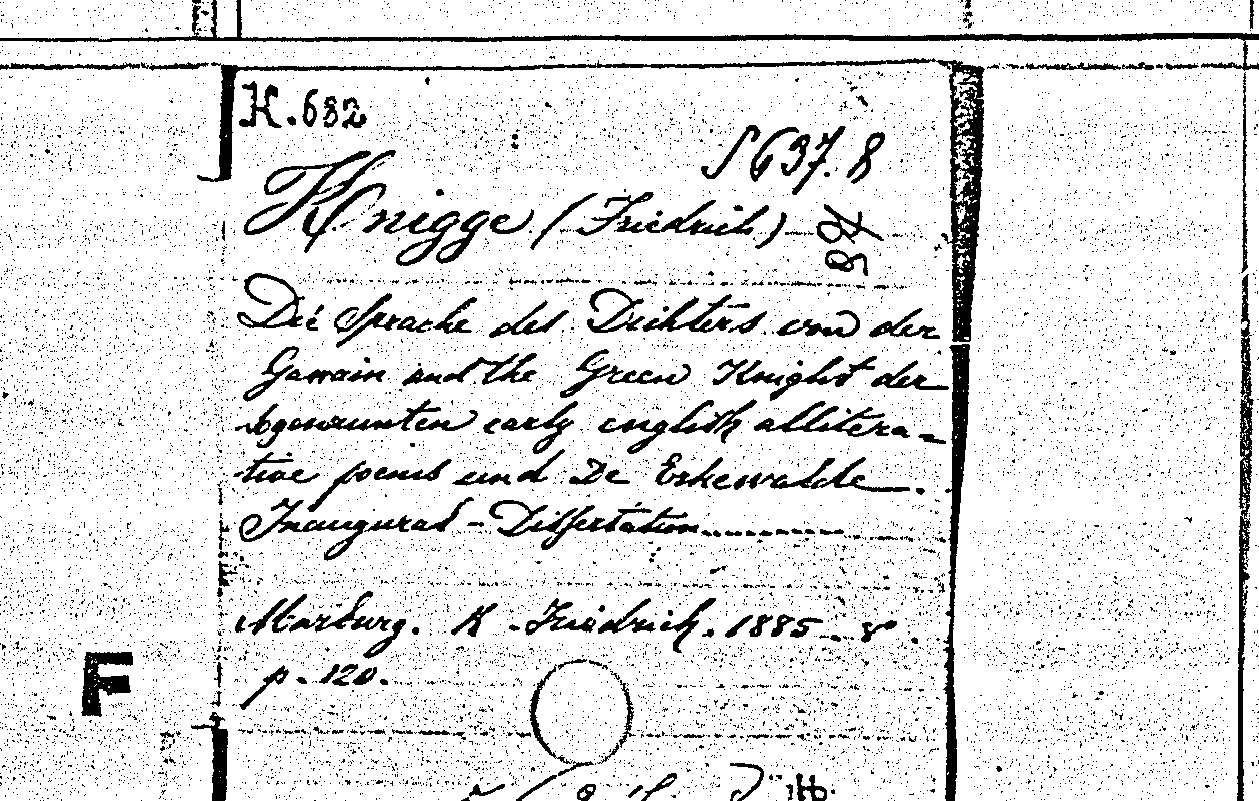 K.682
S 637.8
Knigge (Friedrich)
Die Sprache des Dichters von der
Gawain and the Green Knight der
sogenannten early english allitera-
tive poems und De Erkewalde.
Inaugural-Dissertation
Marburg. K. Friedrich. 1885. 8°.
p. 120.
F